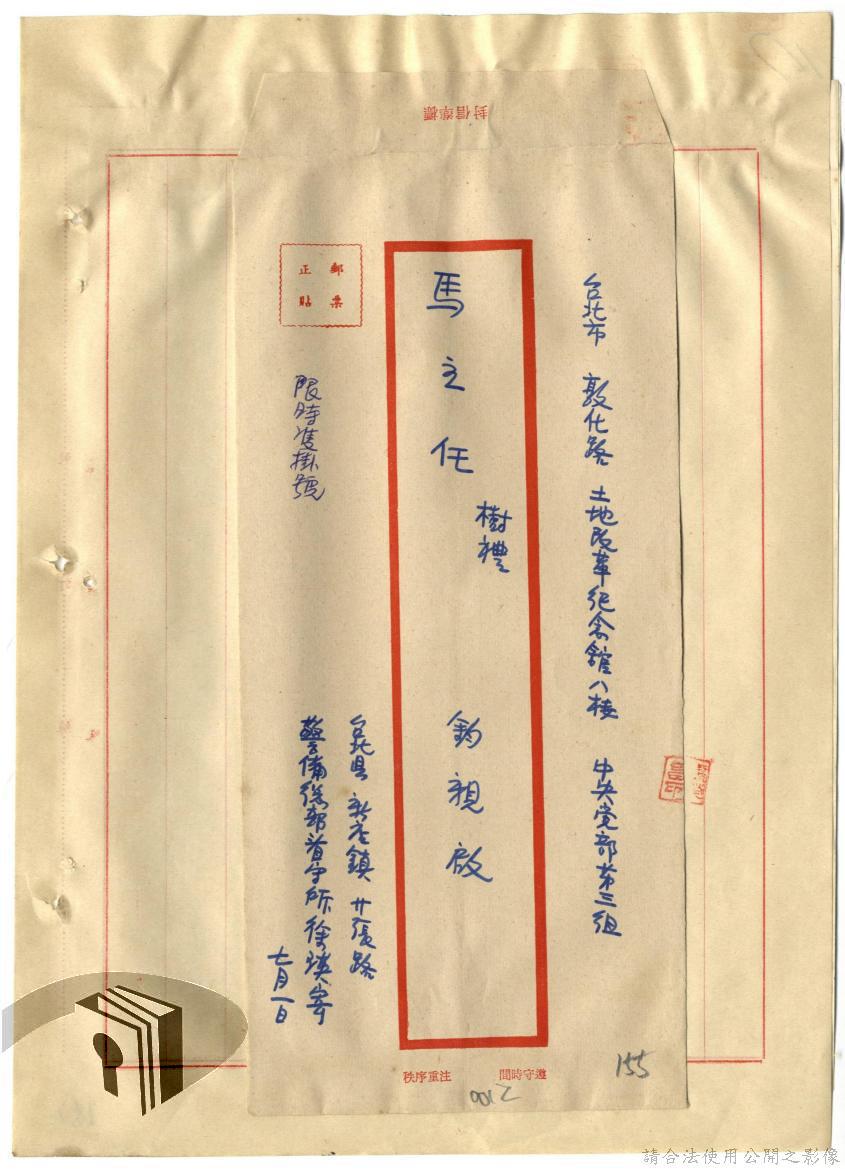 標準信封
台北市 敦化路 土地改革紀念館八楼 中央党部第三組
馬主任
樹禮
鈞親啟
郵票
正貼
限時双掛號
台北県 新店鎮 廿張路
警備總部看守所徐瑛寄
七月一日
遵守時間
注重秩序
155
2100
請合法使用公開之影像